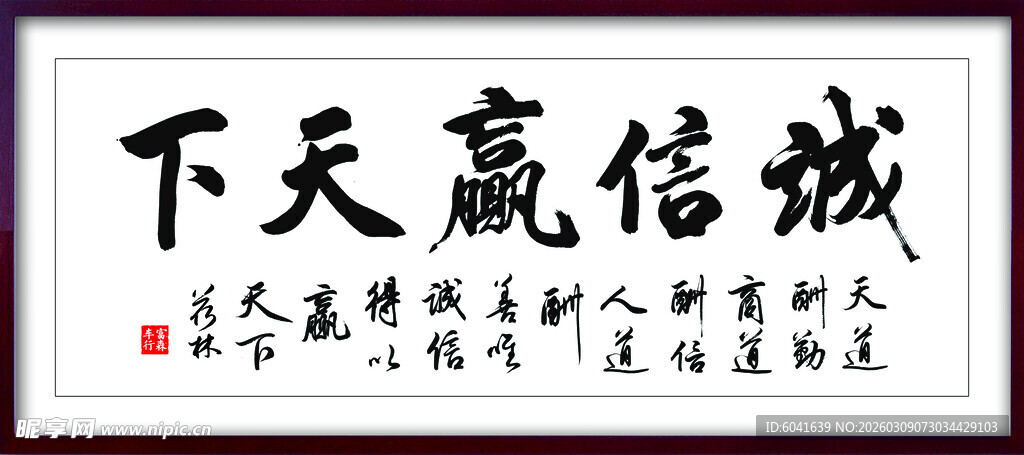 誠信贏天下
天道
酬勤
商道
酬信
人道
酬
善唯
誠信
得以
贏
天下
林
富森
车行
昵享网 www.nipic.cn
ID:6041639 NO:20260309073034429103